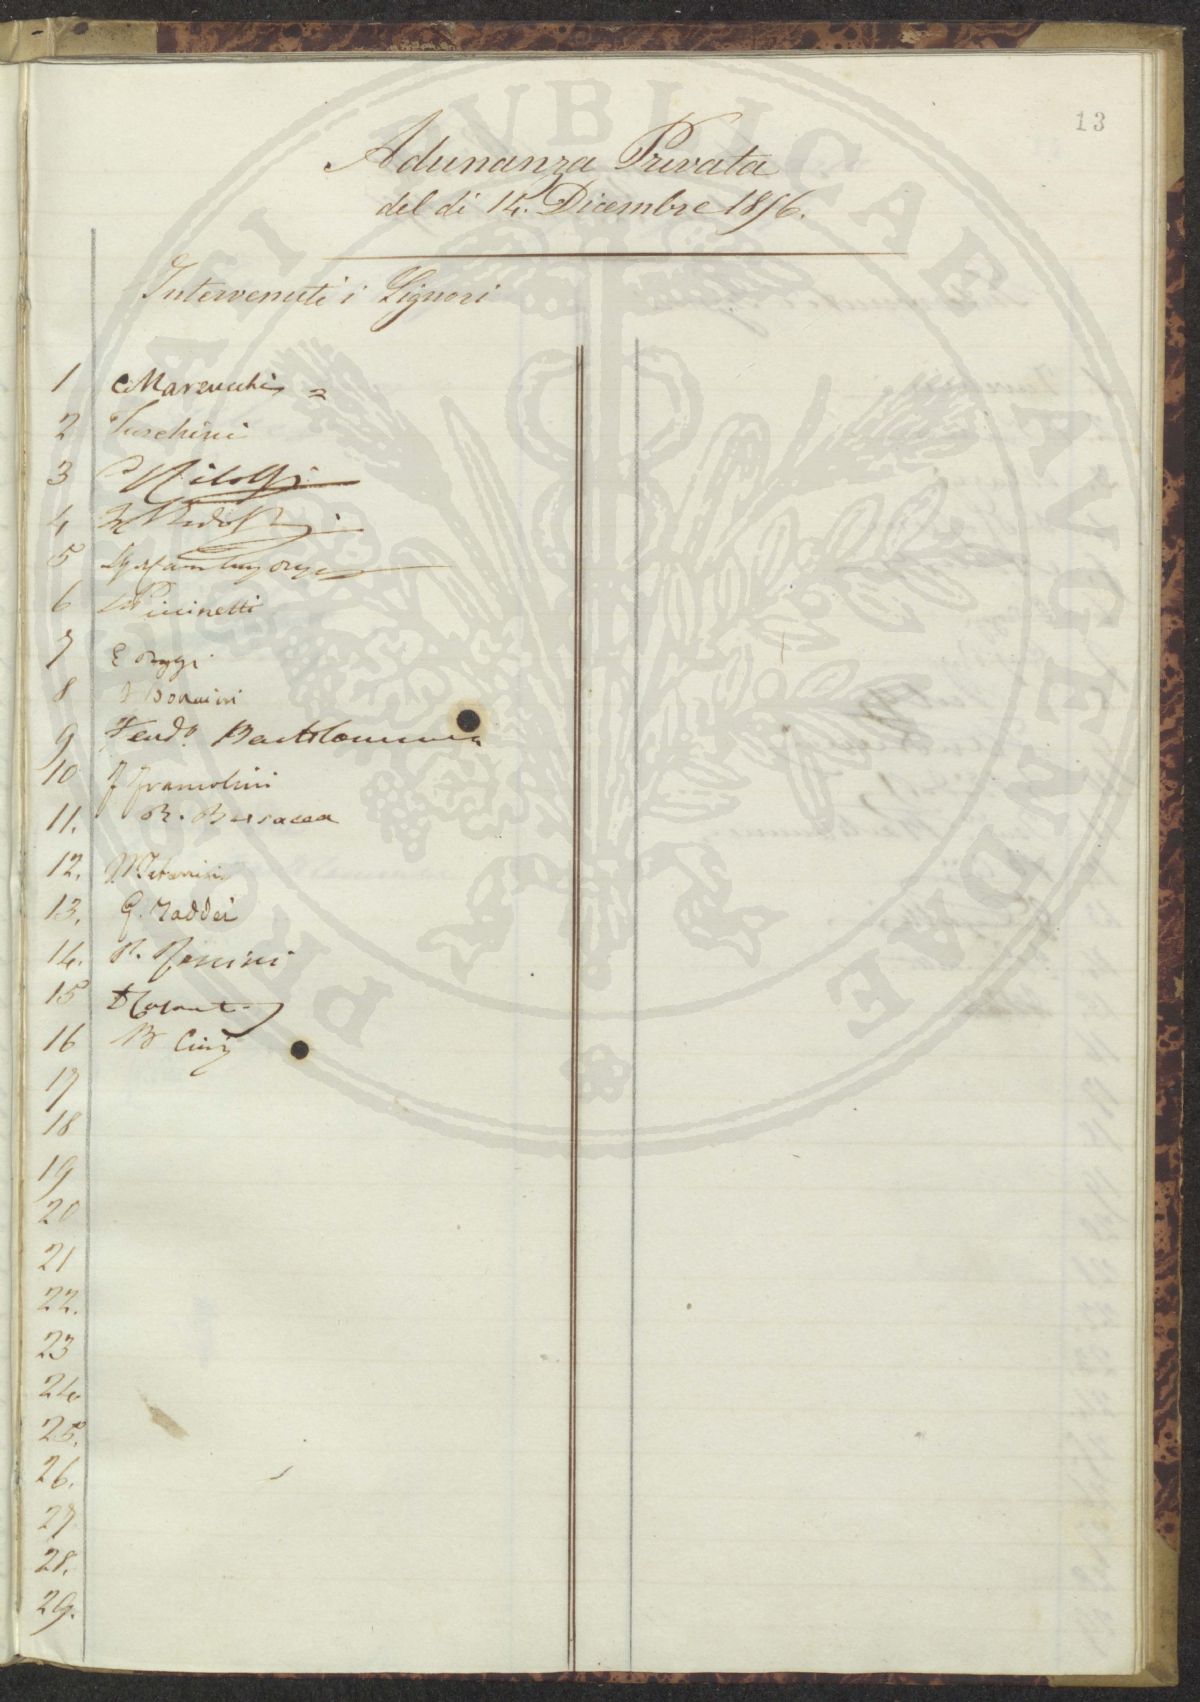 13
Adunanza Privata
del di 14. Dicembre 1856.
Intervenuti i Signori
1 Marcucchi
2 Turchini
3 C Ridolfi
4 Ridolfi
5
6 Puccinotti
7 E Poggi
8 F Bonaini
9 Ferdo. Bartolommei
10 F Franceschini
11. R. Busacca
12.
13. G. Taddei
14.
15
16 B Cini
17
18
19
20
21
22.
23
24
25.
26.
27
28.
29.
PUBLICAE AUGENDAE PROSPERITATI